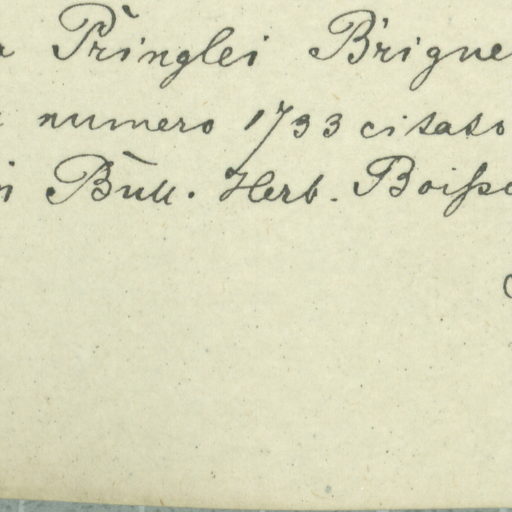 Pringlei Brique
numero 1733 citato
Bull. Herb. Boiss